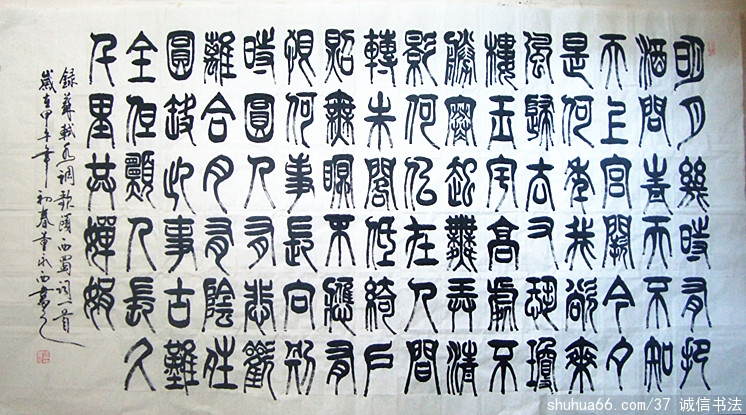 明月幾時有把
酒問青天不知
天上宮闕今夕
是何年我欲乘
風歸去又恐瓊
樓玉宇高處不
勝寒起舞弄清
影何似在人間
轉朱閣低綺戶
照無眠不應有
恨何事長向別
時圓人有悲歡
離合月有陰晴
圓缺此事古難
全但願人長久
千里共嬋娟
録蘇軾水调歌頭西蜀词一首
歲在甲午年初春董永西書之
shuhua66.com/37 诚信书法